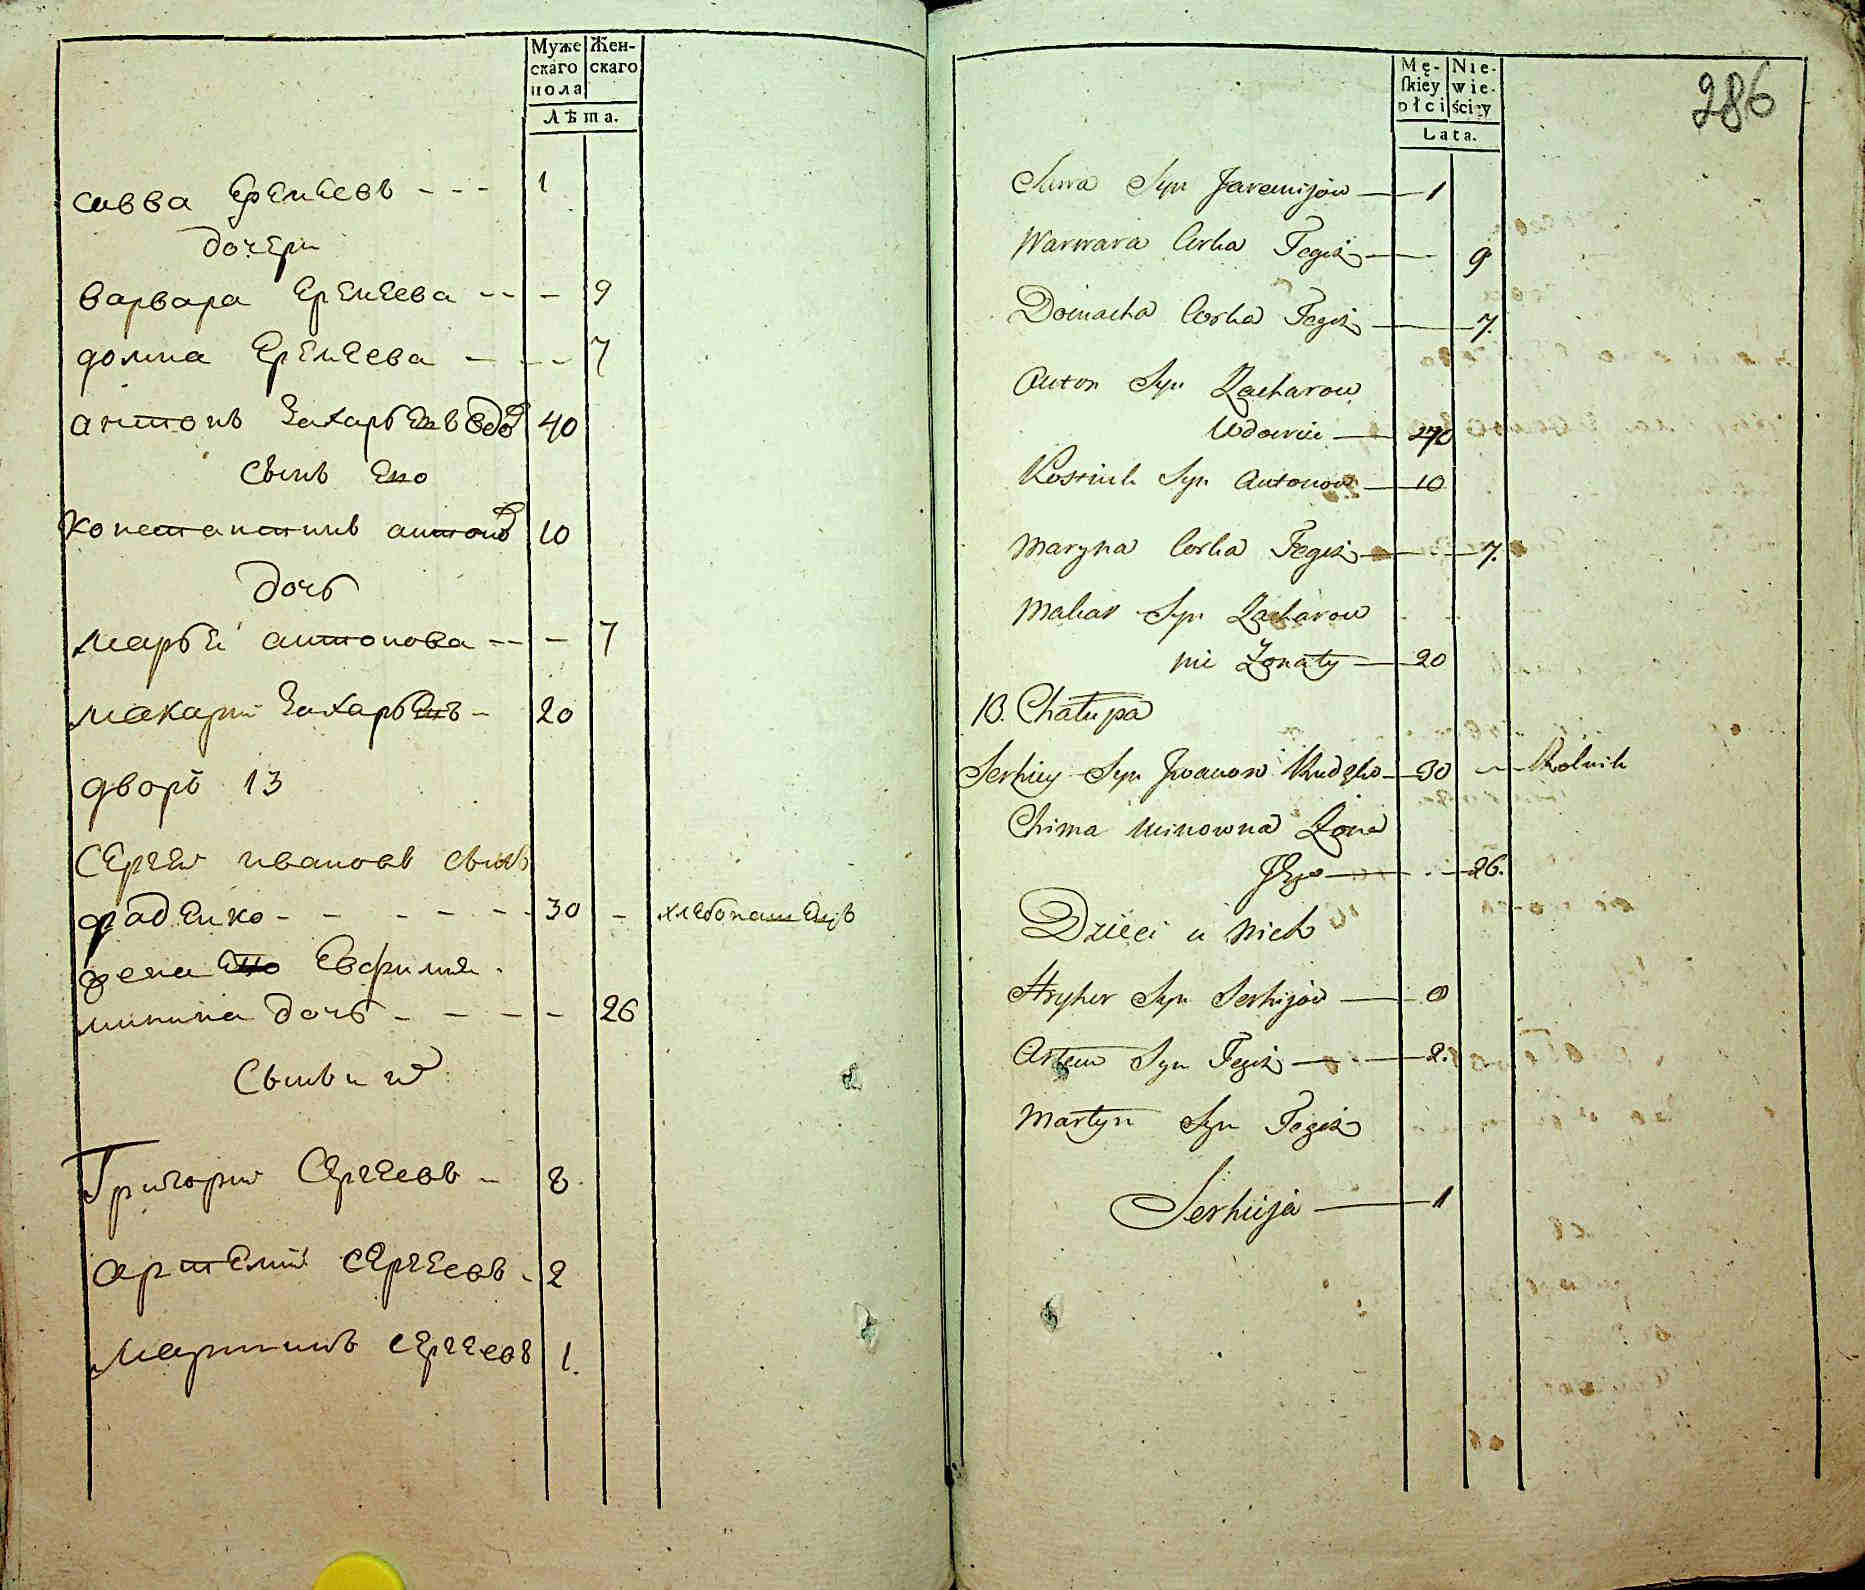 Муже Жен-
скаго скаго
пола
Лѣта.
савва Еремеевъ - - - 1
дочери
варвара Еремеева - - - 9
домна Еремеева - - - 7
антонъ Захарьевъ вдов 40
сынъ Его
константинъ антонов 10
дочь
марья антонова - - - 7
макарий Захарьевъ - 20
дворъ 13
Сергей ивановъ сынъ
раденко - - - - - - 30 - хлебопашецъ
жена Его Евфимия
минина дочь - - - - 26
Сыны их
Григорий Сергеевъ - 8
артемий сергеевъ - 2
мартинъ сергеевъ 1.
286
Mę- Nie-
skiey wie-
płci ściey
Lata.
Sawa Syn Jaremijow — 1
Warwara Corka Tegoż — 9
Domacha Corka Tegoż — 7.
Anton Syn Zacharow
Wdowiec — 40
Kostiuk Syn Antonow — 10
Maryna Corka Tegoż — 7.
Makar Syn Zacharow
nie Żonaty — 20
13. Chałupa
Serhiey Syn Jwanow — 30 — Rolnik
Chima Minowna Żona
Jego — 26.
Dzieci u Nich
Hryhor Syn Serhijow — 8
Artem Syn Tegoż — 2.
Martyn Syn Tegoż
Serhieja — 1